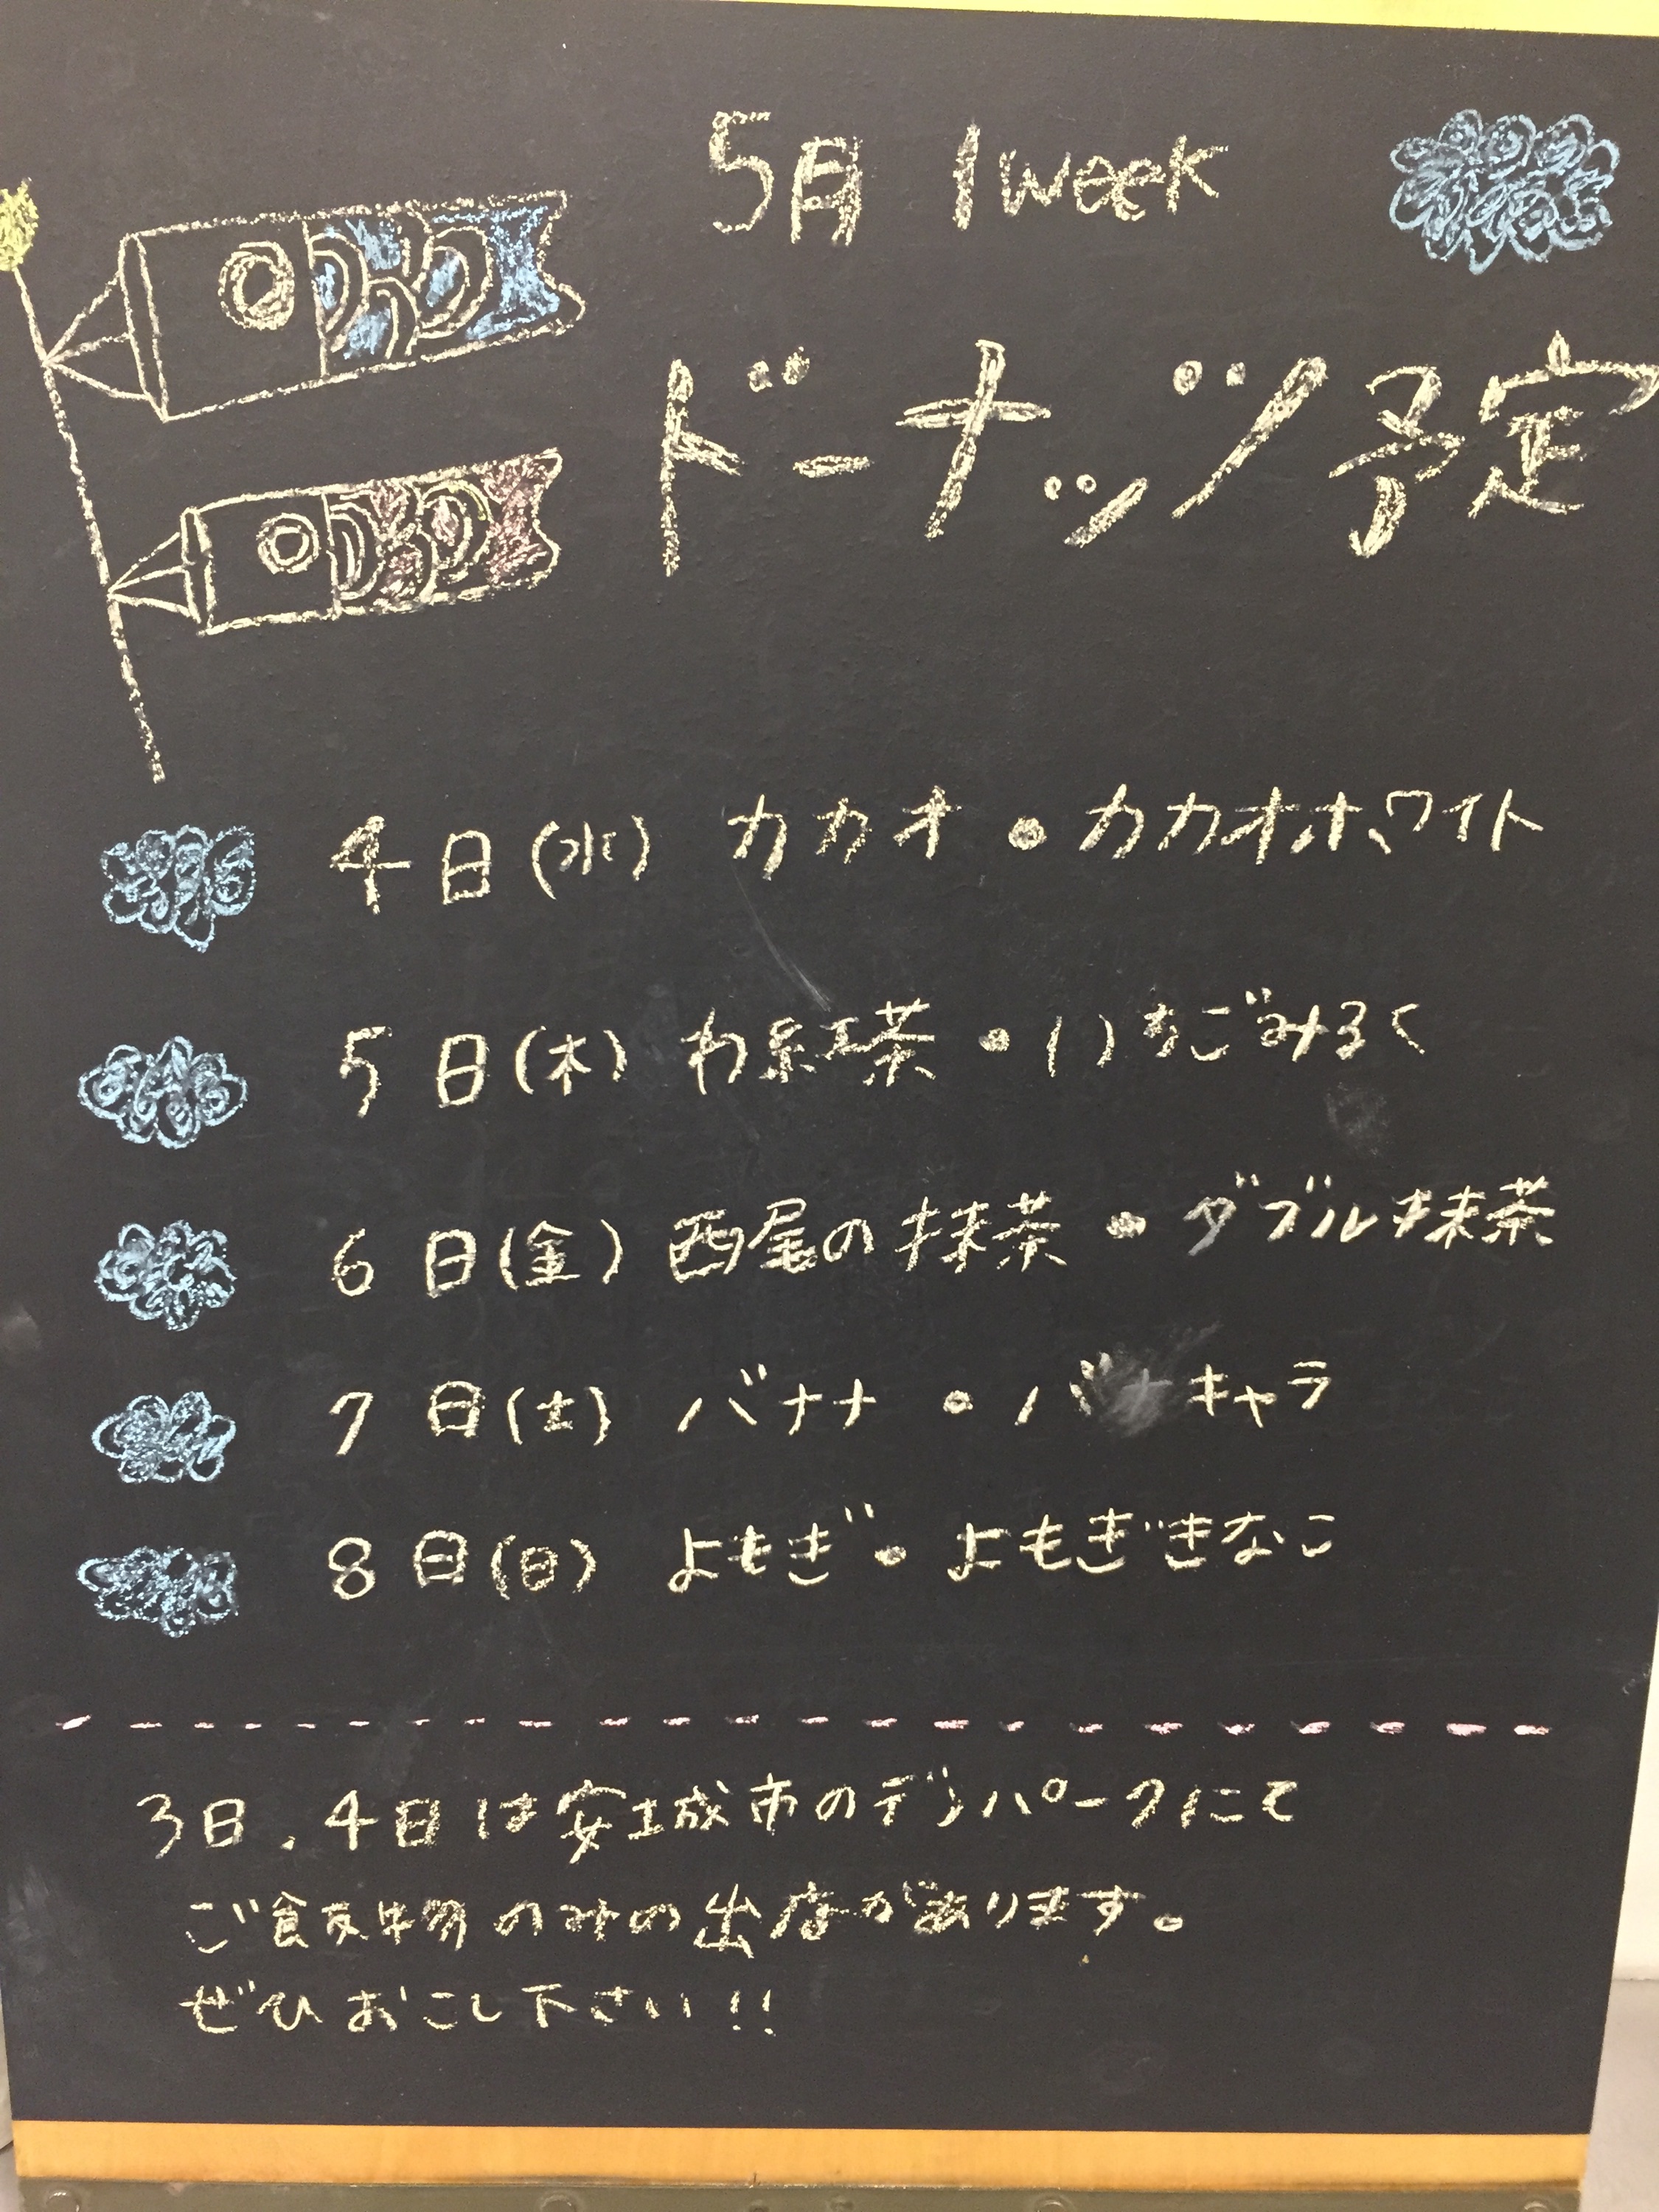 5月 1week
ドーナッツ予定
4日(水) カカオ・カカオホワイト
5日(木) わ紅茶・いちごみるく
6日(金) 西尾の抹茶・ダブル抹茶
7日(土) バナナ・バナキャラ
8日(日) よもぎ・よもぎきなこ
3日、4日は安城市のデンパークにて
ご飯物のみの出店があります。
ぜひおこし下さい!!